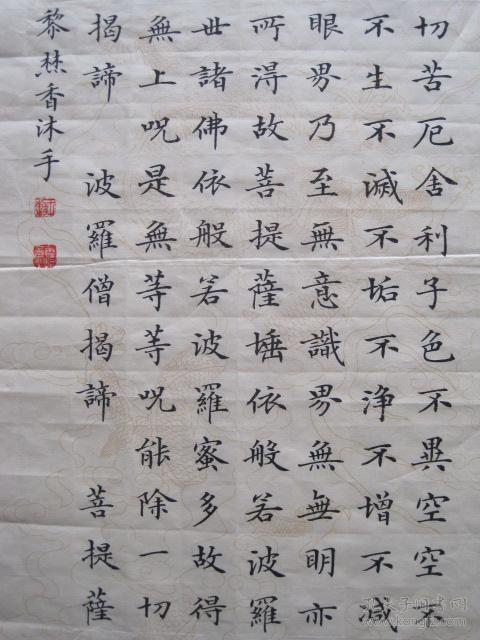 切苦厄舍利子色不異空空不
不生不滅不垢不浄不增不減
眼界乃至無意識界無無明亦
所得故菩提薩埵依般若波羅
世諸佛依般若波羅蜜多故得
無上呪是無等等呪能除一切
揭諦 波羅僧揭諦 菩提薩
黎焚香沐手
孔夫子旧书网
kongfz.com